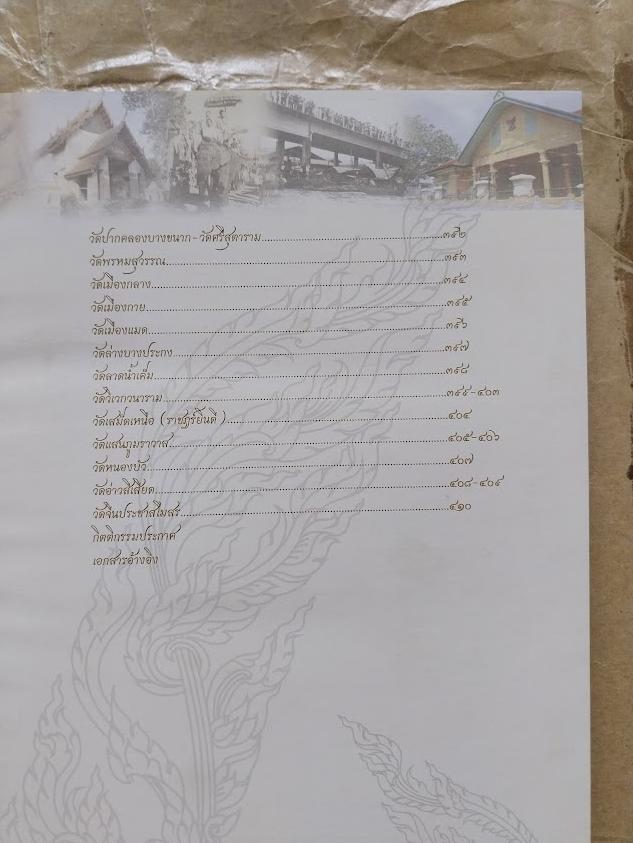 วัดปากคลองบางขนาก - วัดศรีสุตาราม......๓๙๒
วัดพรหมสุวรรณ......๓๙๓
วัดเมืองกลาง......๓๙๔
วัดเมืองกาย......๓๙๕
วัดเมืองแมด......๓๙๖
วัดล่างบางประกง......๓๙๗
วัดลาดน้ำเค็ม......๓๙๘
วัดวิเวกวนาราม......๓๙๙-๔๐๓
วัดเสม็ดเหนือ (ราษฎร์ยินดี)......๔๐๔
วัดแสนภูมราวาส......๔๐๕-๔๐๖
วัดหนองบัว......๔๐๗
วัดอ่าวสีเสียด......๔๐๘-๔๐๙
วัดจีนประชาสโมสร......๔๑๐
กิตติกรรมประกาศ
เอกสารอ้างอิง